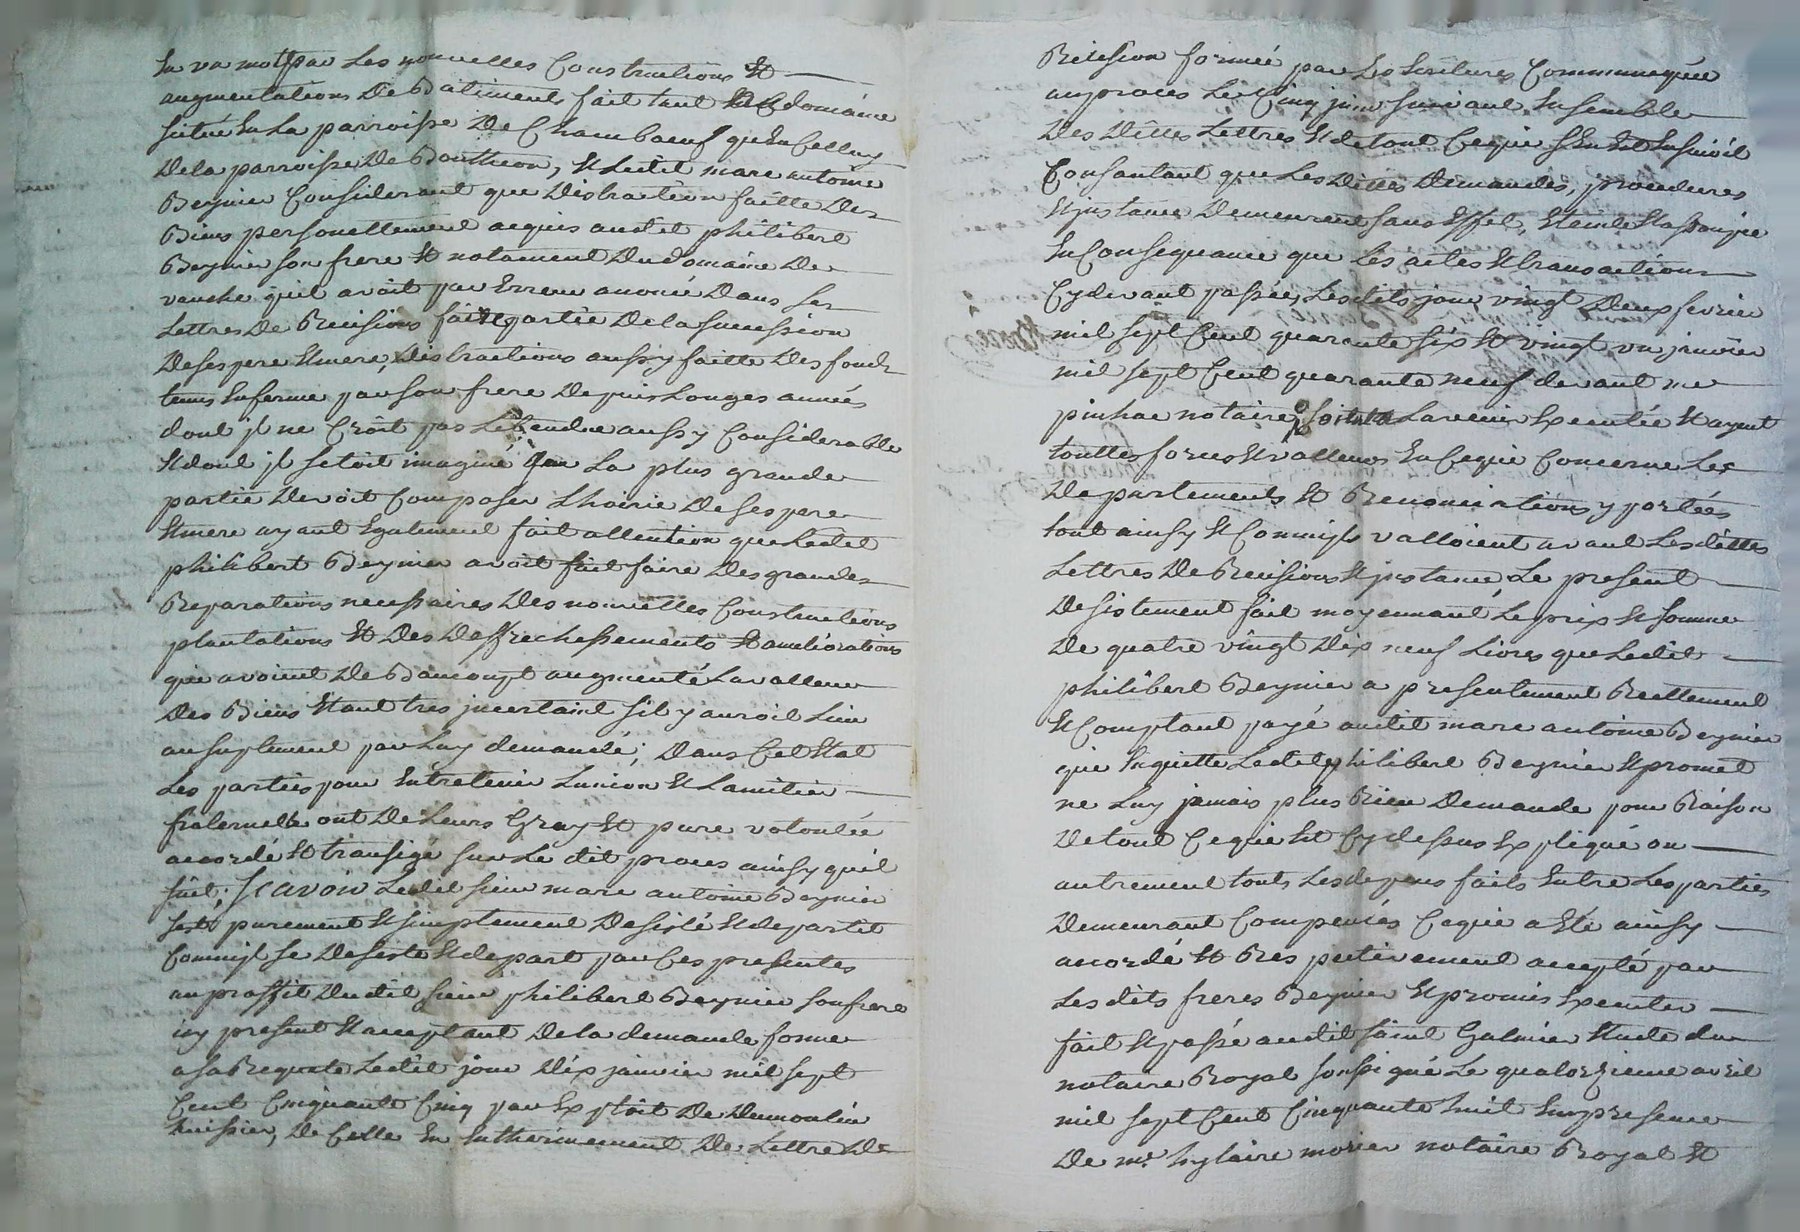 en un mot par les nouvelles Constructions et
augmentations De Batiments fait tant au domaine
situé En La parroisse De Chambaeuf qu'en Celluy
De la parroisse De Boutheon, Et Ledit marc antoine
Beynier Considerant que Distraction faitte Des
Biens personnellement acquis audit philibert
Beynier son frere Et notament Du Domaine De
vauche qu'il avoit par Erreur anoncé Dans ses
Lettres De Recision faire partie De la succession
De ses pere Et mere, Distractions aussy faitte Des fonds
tenus En ferme par son frere Depuis Longes années
dont jl ne Croit pas L'étendue aussy Considerable
Et dont jl s'etoit imaginé que La plus grande
partie Devoit Composer L'hoirie De ses pere
Et mere ayant Egalement fait attention que Ledit
philibert Beynier avoit fait faire Des grandes
Reparations necessaires Des nouvelles Constructions
plantations Et Des Deffrichessements Et améliorations
qui avoient De Baucoupt augmenté La valleur
Des Biens Etant tres jncertaint s'il y auroit Lieu
au suplement par Luy demandé; Dans Cet Etat
Les parties pour Entretenir L'union Et L'amitier
fraternelle ont De Leurs Gray Et pure volontée
accordé Et transigé sur Le dit proces ainsy qu'il
suit; Scavoir Ledit sieur marc antoine Beynier
s'est purement Et simplement Desisté Et departit
Comm'jl se Desiste Et depart par Ces presentes
au proffit Dudit sieur philibert Beynier son frere
icy present Et acceptant De la demande formée
a sa Requete Ledit jour Dix janvier mil sept
Cent Cinquante Cinq par Exploit De Dumoulin
huissier, De Celle En Entherinement De Lettre De
Recision formée par Les Ecritures Communiquée
au proces Le Cinq juin suivant Ensemble
Des Dittes Lettres Et de tout Ce qui s'En Est Ensuivit
Consantant que Les Dittes Demandes, procedures
Et jnstance Demeurent sans Effet, Eteinte Et assoupie
En Consequance que Les actes Et transactions
Cy devant passées Lesdits jour vingt Deux fevrier
mil sept Cent quarante six Et vingt un janvier
mil sept Cent quarante neuf devant me
pinhac notaire, soit a L'avenir Executée Et ayent
touttes forces Et valleurs En Ce qui Concerne Les
Departements Et Renonciations y portées
tout ainsy Et Comm'jls valloient avant Lesdittes
Lettres De Recisions Et jnstance, Le present
Desistement fait moyennant Le prix Et somme
De quatre vingt Dix neuf Livres que Ledit
philibert Beynier a presentement Reellement
Et Comptant payé audit marc antoine Beynier
qui En quitte Ledit philibert Beynier Et promet
ne Luy jamais plus Rien Demande pour Raison
De tout Ce qui Est Cy dessus Expliqué ou
autrement touts Les depens faits Entre Les parties
Demeurant Compencés Ce qui a Eté ainsy
accordé Et Respectivement accepté par
Les dits freres Beynier Et promis Executer
fait Et passé audit saint Galmier Etude du
notaire Royal soussigné Le quatorzieme avril
mil sept Cent Cinquante huit En presence
De me. hylaire morier notaire Royal Et